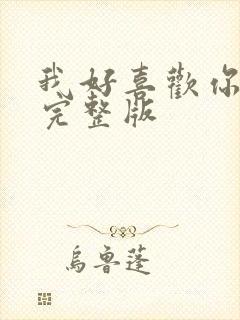 我好喜歡你
完整版
烏魯蓬